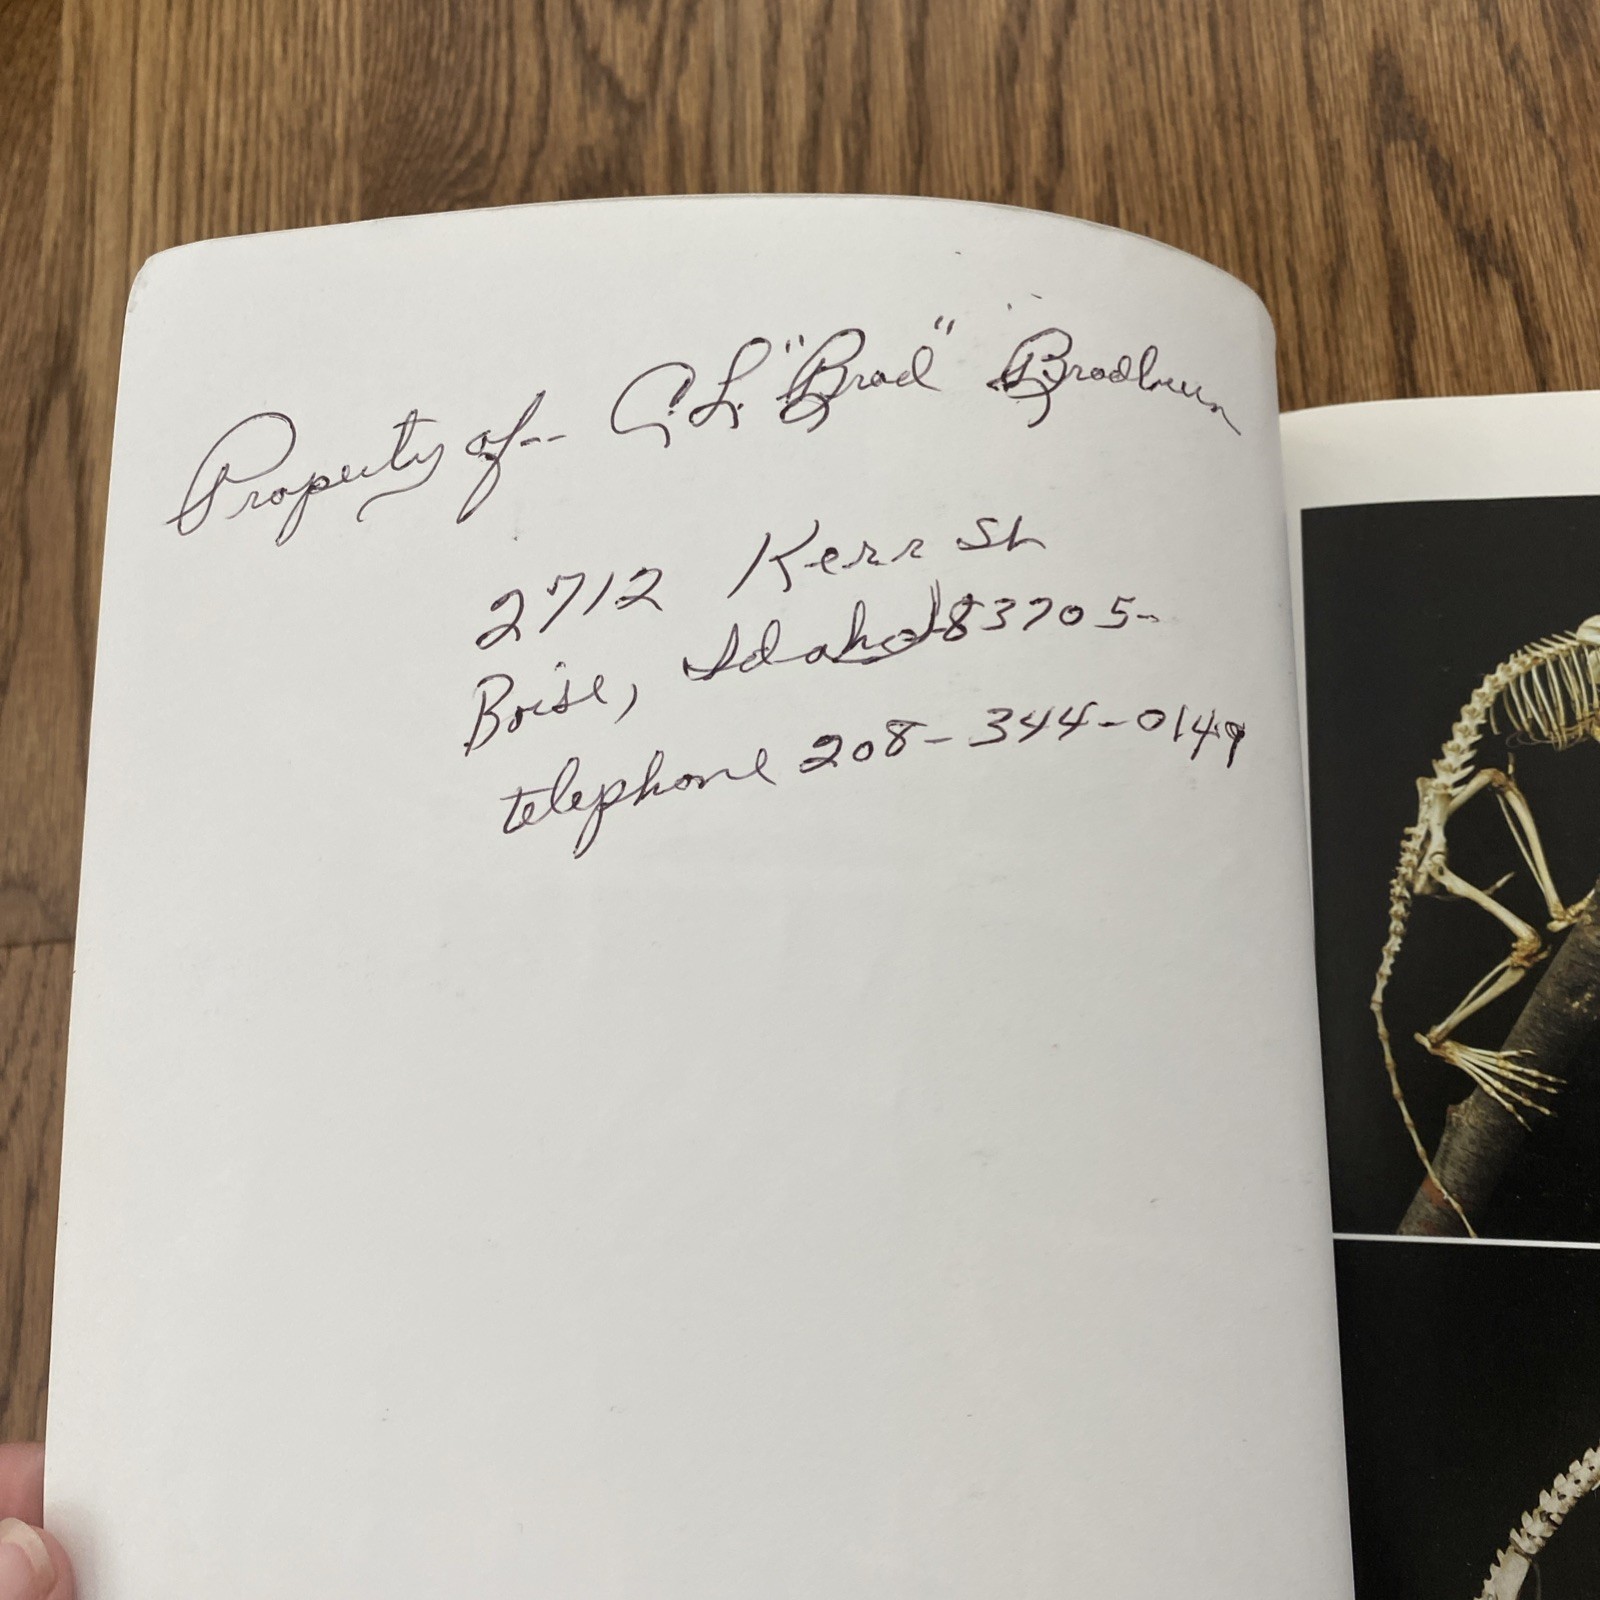 Property of-- C.L. "Brad" Bradburn
2712 Kerr St
Boise, Idaho 83705-
telephone 208-344-0149